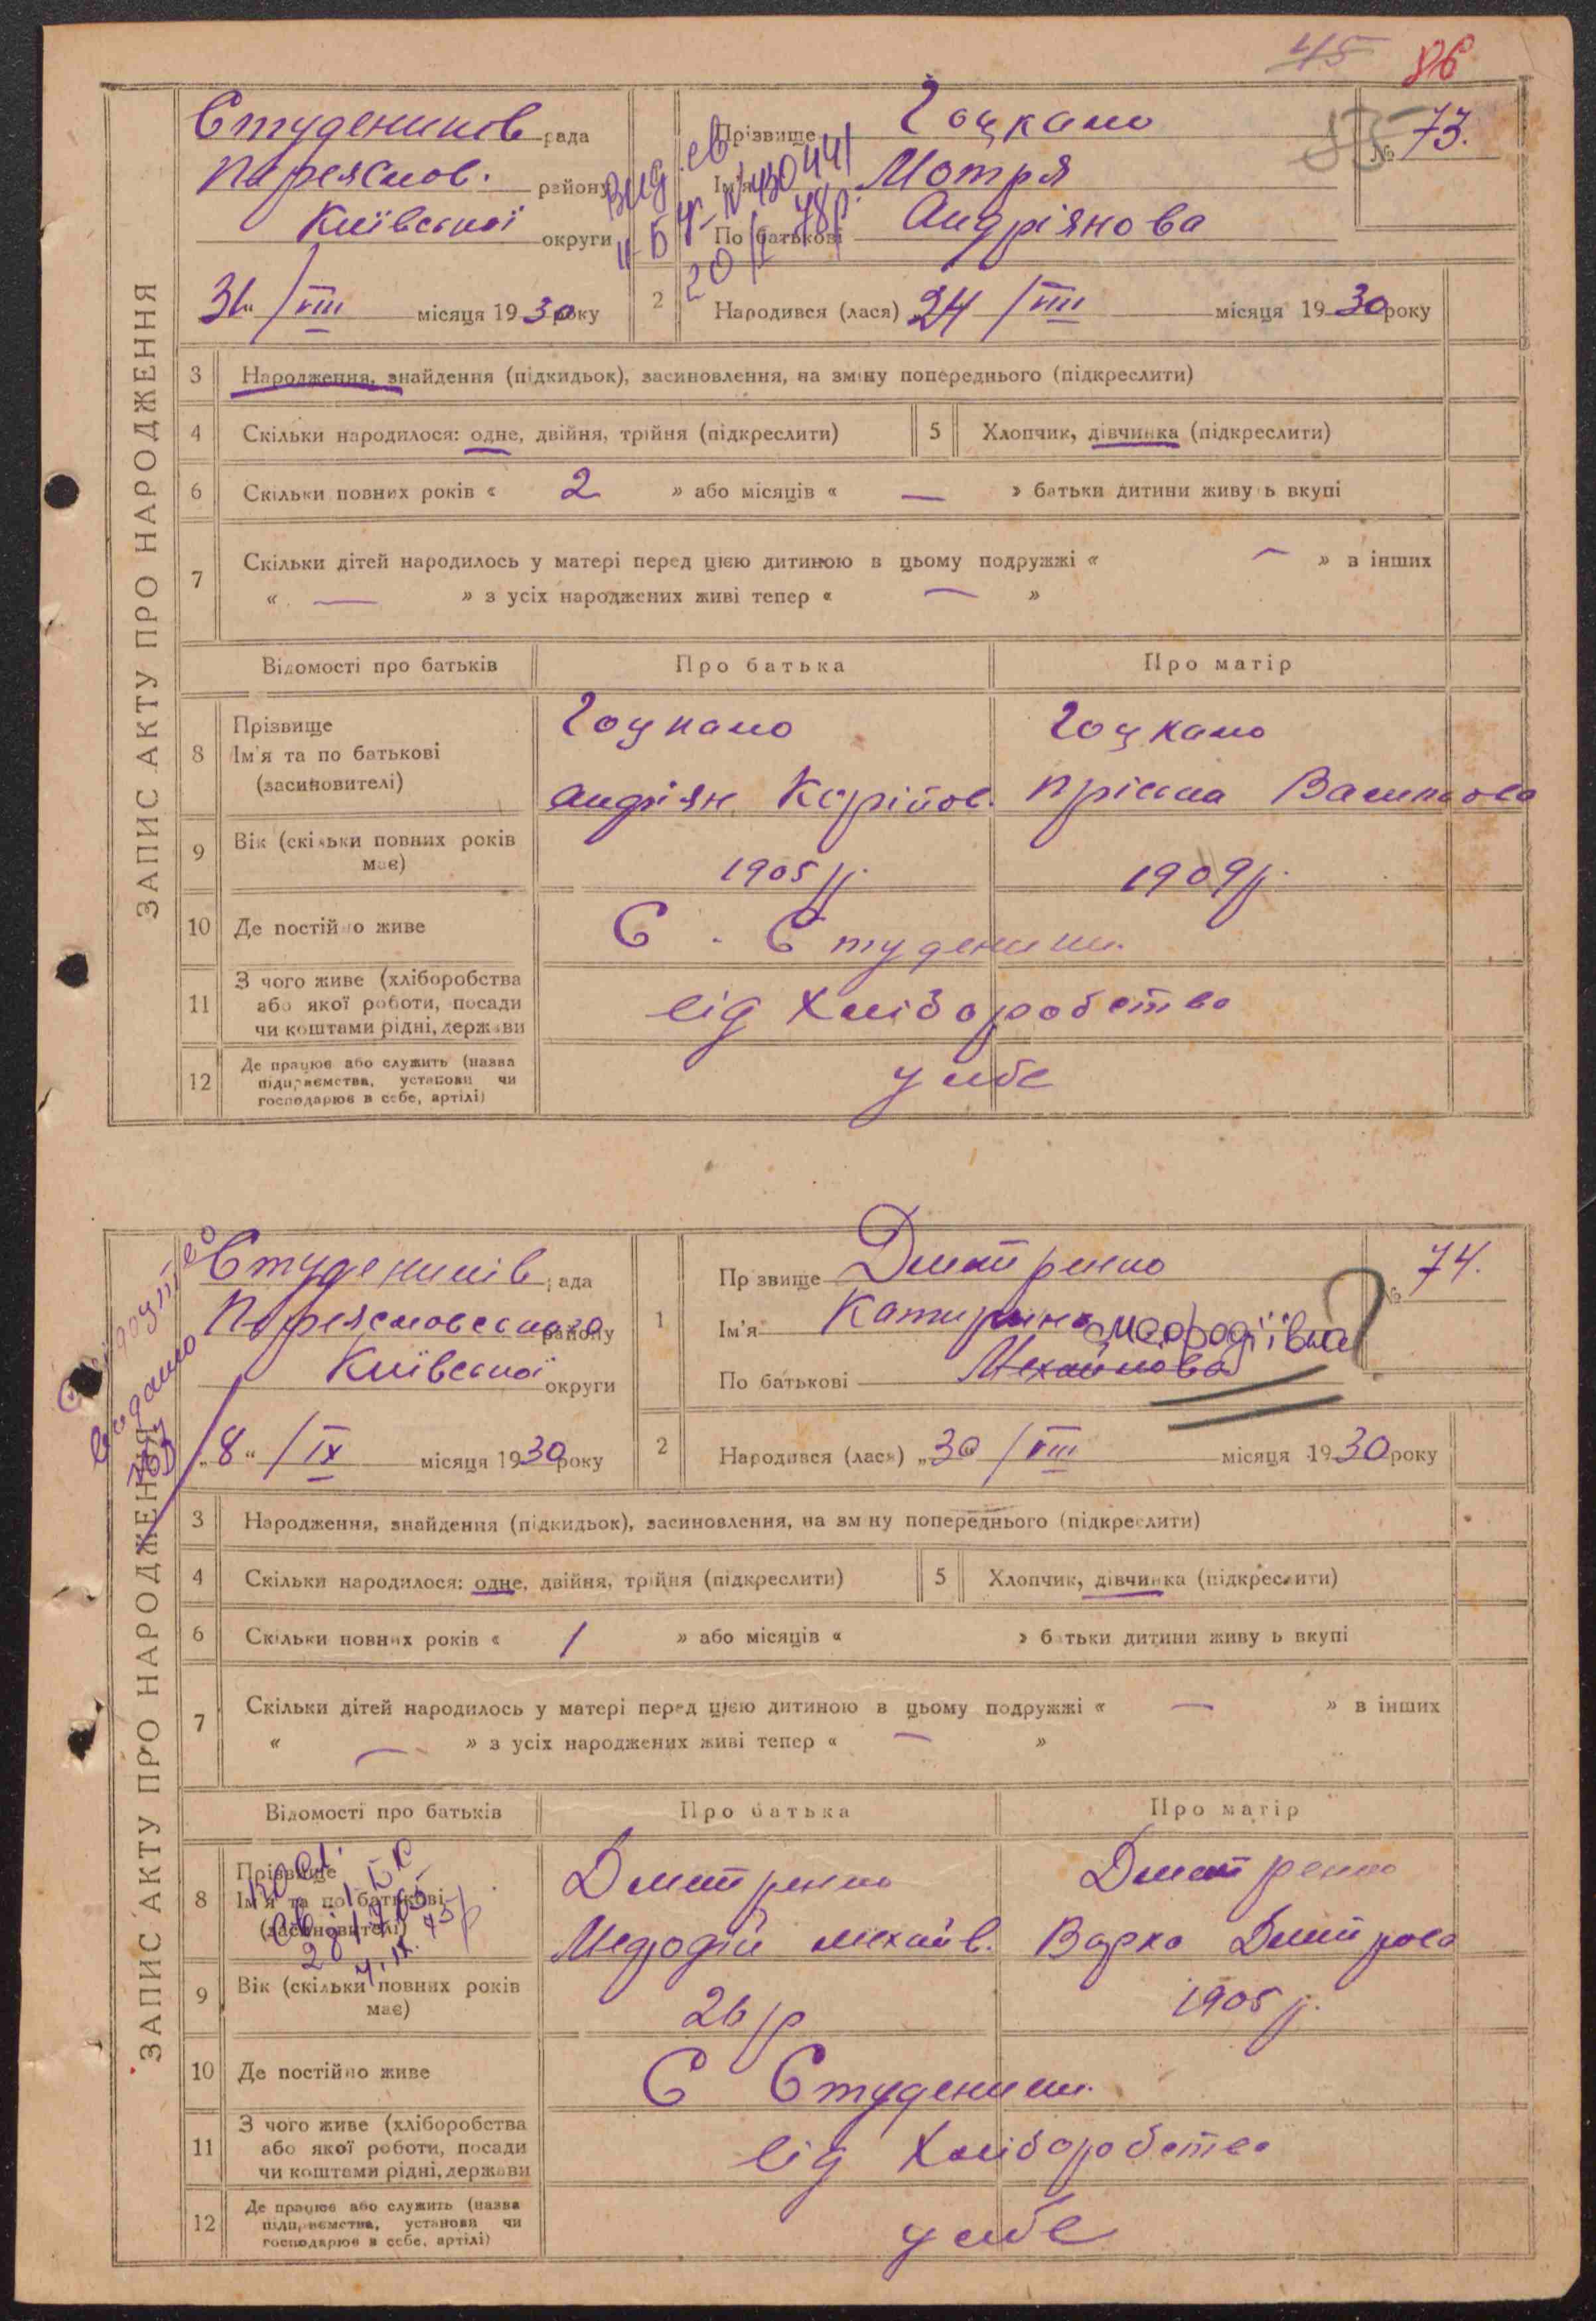 45 86
Студеників рада
Прізвище Гоцкало
№ 73.
Переяслов. району
Ім'я Мотря
Київської округи
По батькові Андріянова
Вид. св.
ІІ-БЧ-№430441
20/І 48р.
31 / VIII місяця 1930 року
2 Народився (лася) 24 / VIII місяця 1930 року
ЗАПИС АКТУ ПРО НАРОДЖЕННЯ
3 Народження, знайдення (підкидьок), засиновлення, на зміну попереднього (підкреслити)
4 Скільки народилося: одне, двійня, трійня (підкреслити) 5 Хлопчик, дівчинка (підкреслити)
6 Скільки повних років « 2 » або місяців « — » батьки дитини живуть вкупі
7 Скільки дітей народилось у матері перед цією дитиною в цьому подружжі « — » в інших
« — » з усіх народжених живі тепер « — »
Відомості про батьків Про батька Про матір
8 Прізвище
Ім'я та по батькові
(засиновителі)
Гоцкало Гоцкало
Андріян Карпов. Пріська Василіова
9 Вік (скільки повних років
має)
1905 р. 1909 р.
10 Де постійно живе
С. Студеники.
11 З чого живе (хліборобства
або якої роботи, посади
чи коштами рідні, держави
від Хліборобства
12 Де працює або служить (назва
підприємства, установи чи
господарює в себе, артілі)
у себе
Студеників рада
Прізвище Дмитренко
№ 74.
Переясловського району
1 Ім'я Катирина Мефодіївна
Київської округи
По батькові Михайлова
„8“ / IX місяця 1930 року
2 Народився (лася) „30 / VIII місяця 1930 року
ЗАПИС АКТУ ПРО НАРОДЖЕННЯ
3 Народження, знайдення (підкидьок), засиновлення, на зміну попереднього (підкреслити)
4 Скільки народилося: одне, двійня, трійня (підкреслити) 5 Хлопчик, дівчинка (підкреслити)
6 Скільки повних років « 1 » або місяців « » батьки дитини живуть вкупі
7 Скільки дітей народилось у матері перед цією дитиною в цьому подружжі « — » в інших
« — » з усіх народжених живі тепер « — »
Відомості про батьків Про батька Про матір
8 Прізвище
Ім'я та по батькові
(засиновителі)
Дмитренко Дмитренко
Мефодій Михайв. Варка Дмитрова
9 Вік (скільки повних років
має)
26 р 1905 р.
10 Де постійно живе
С Студеники.
11 З чого живе (хліборобства
або якої роботи, посади
чи коштами рідні, держави
від Хліборобства
12 Де працює або служить (назва
підприємства, установи чи
господарює в себе, артілі)
у себе